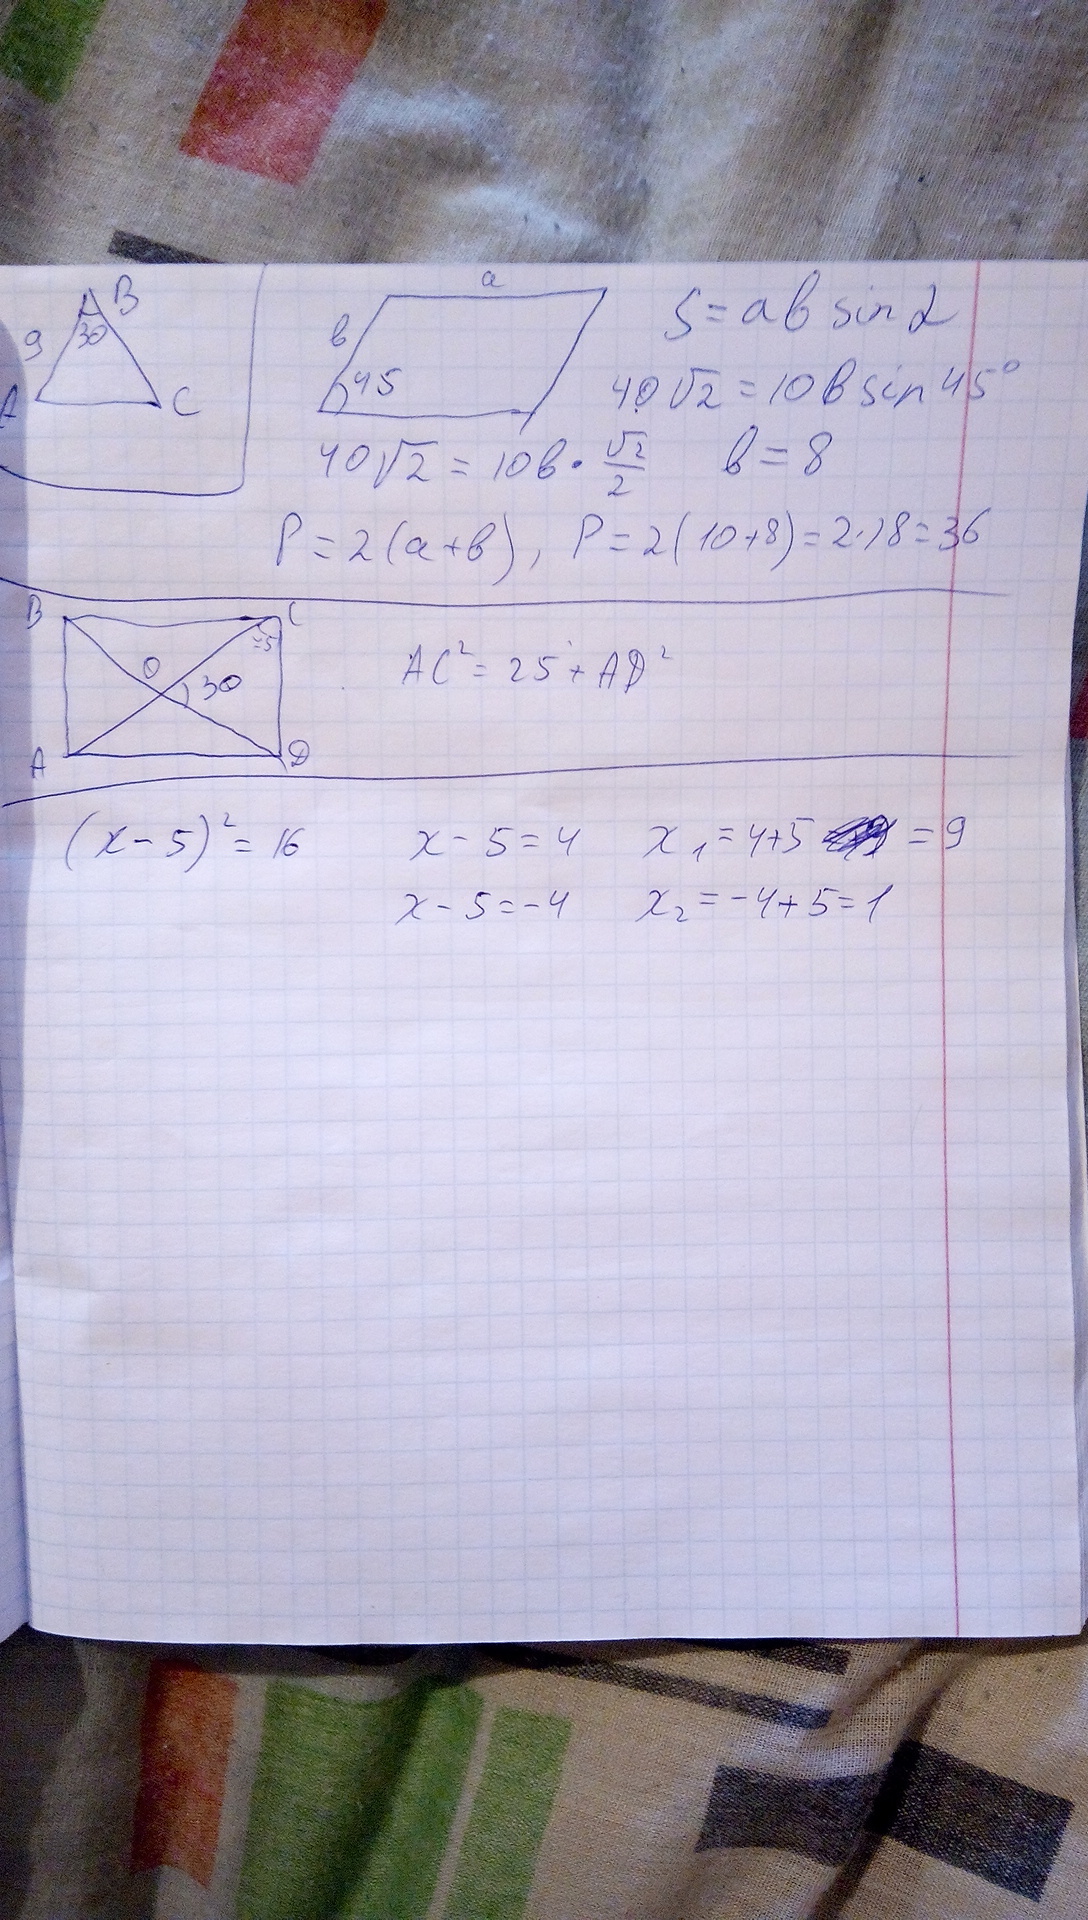 B
9
30
A
C
a
в
45
S = aв sin α
40√2 = 10в sin 45°
40√2 = 10в · √2/2 в = 8
P = 2(a+в), P = 2(10+8) = 2·18 = 36
B
C
=5
O
30
A
D
AC² = 25 + AD²
(x-5)² = 16 x-5=4 x₁ = 4+5 = 9
x-5=-4 x₂ = -4+5=1